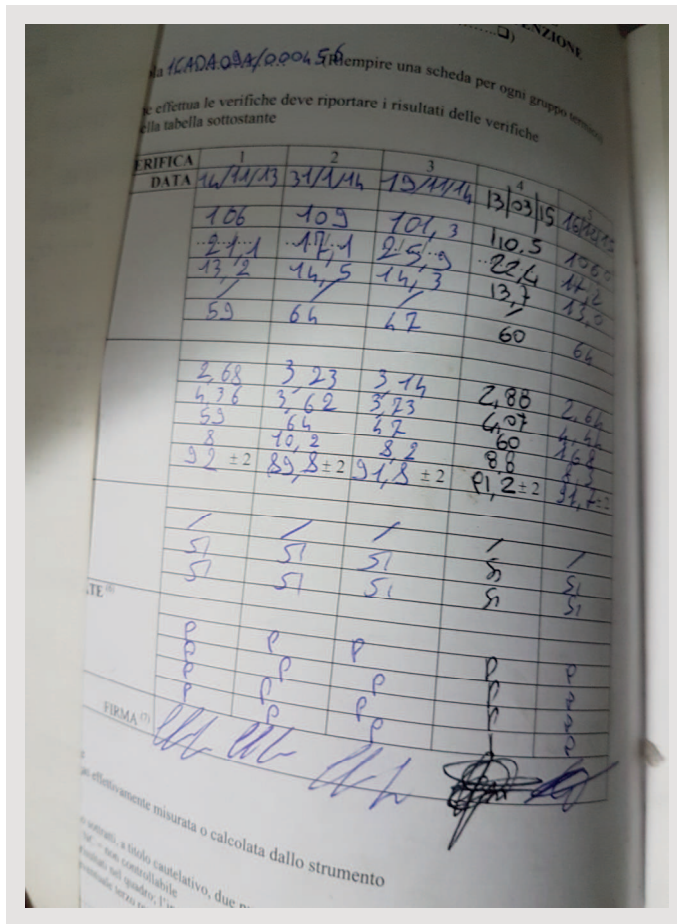 ENZIONE
1CADA09A/000456 (Riempire una scheda per ogni gruppo
effettua le verifiche deve riportare i risultati delle verifiche
ella tabella sottostante
ERIFICA 1 2 3 4
DATA 14/11/13 31/1/14 19/11/14 13/03/15
106 109 101,3 110,5 106,0
21,1 17,1 25,9 22,4 17,2
13,2 14,5 14,3 13,7 13,0
/ / / /
59 64 47 60 64
2,68 3,23 3,14 2,88 2,64
4,36 3,62 3,73 4,07 4,44
59 64 47 60
8 10,2 8,2 8,8 8,3
92 ±2 89,8 ±2 91,8 ±2 91,2 ±2 91,7 ±2
/ / / / /
SI SI SI SI SI
SI SI SI SI SI
TE (6)
P P P P P
P P P P
P P P P
P P P
FIRMA (7)
effettivamente misurata o calcolata dallo strumento
sottratti, a titolo cautelativo, due
non controllabile